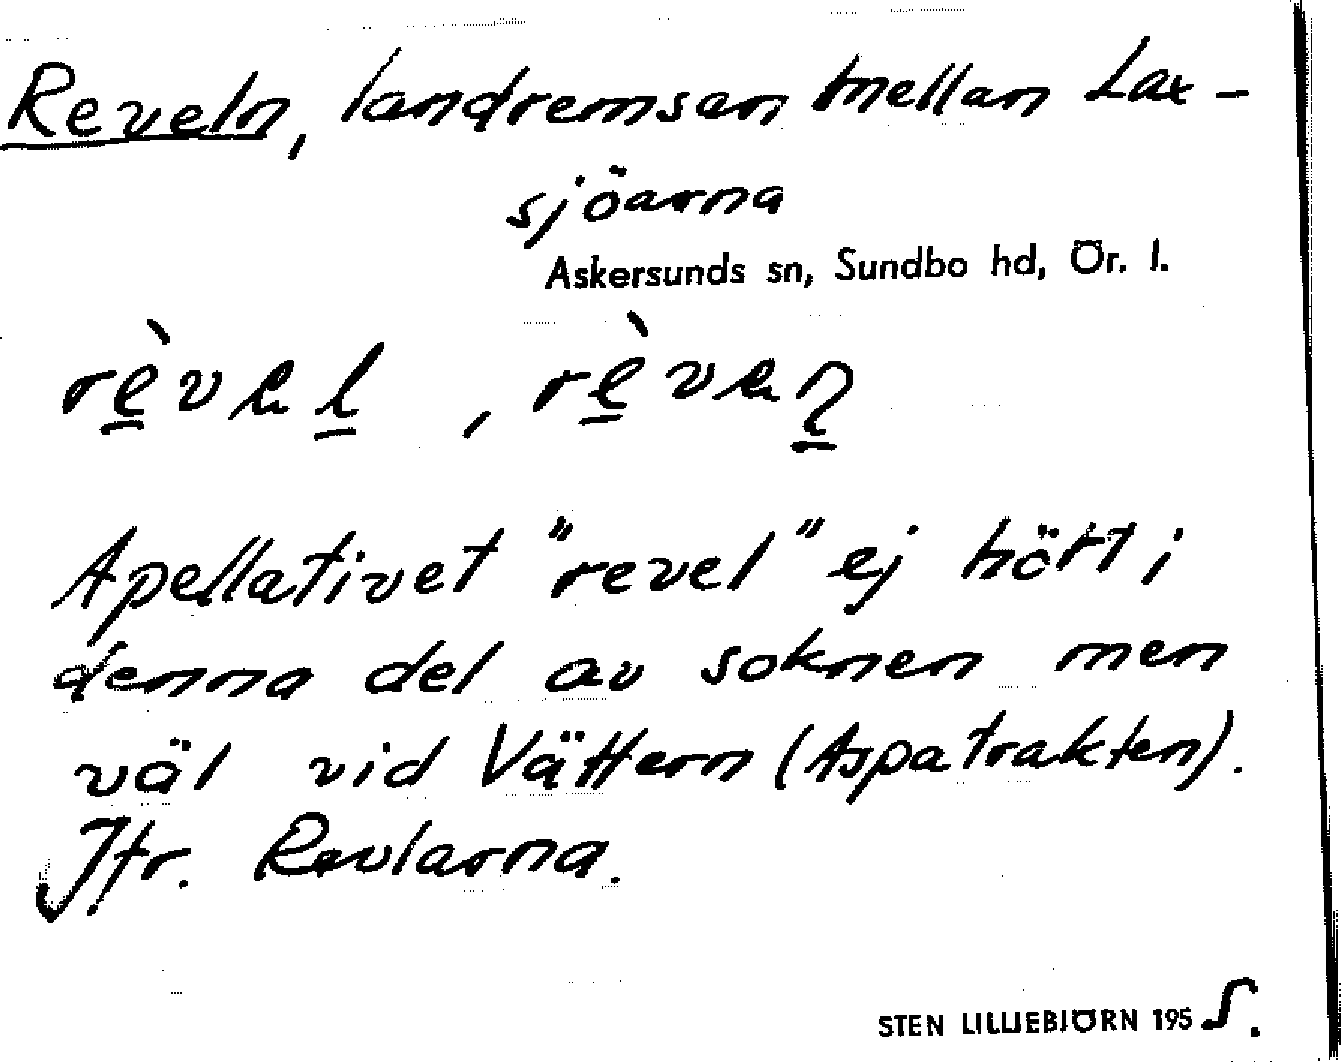 Reveln, landremsan mellan Lax-
sjöarna
Askersunds sn, Sundbo hd, Ör. l.
Apellativet "revel" ej hört i
denna del av soknen men
väl vid Vättern (Aspatrakten).
Jfr. Revlarna.
STEN LILLIEBJÖRN 1955.